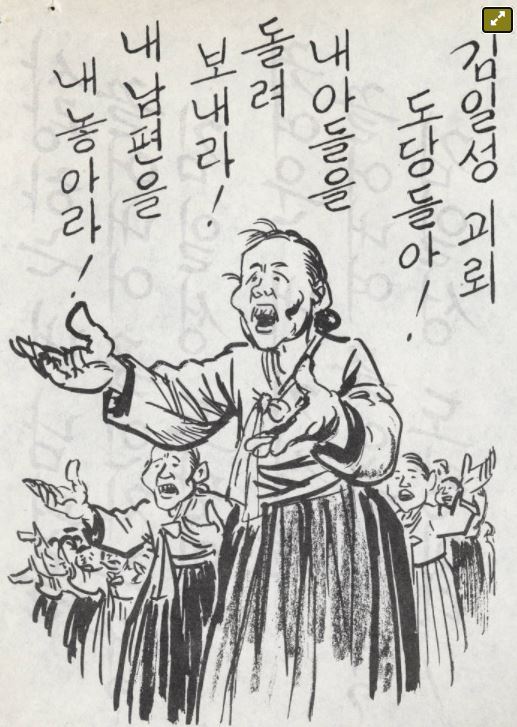 김일성 괴뢰
도당들아!
내 아들을
돌려
보내라!
내 남편을
내 놓아라!